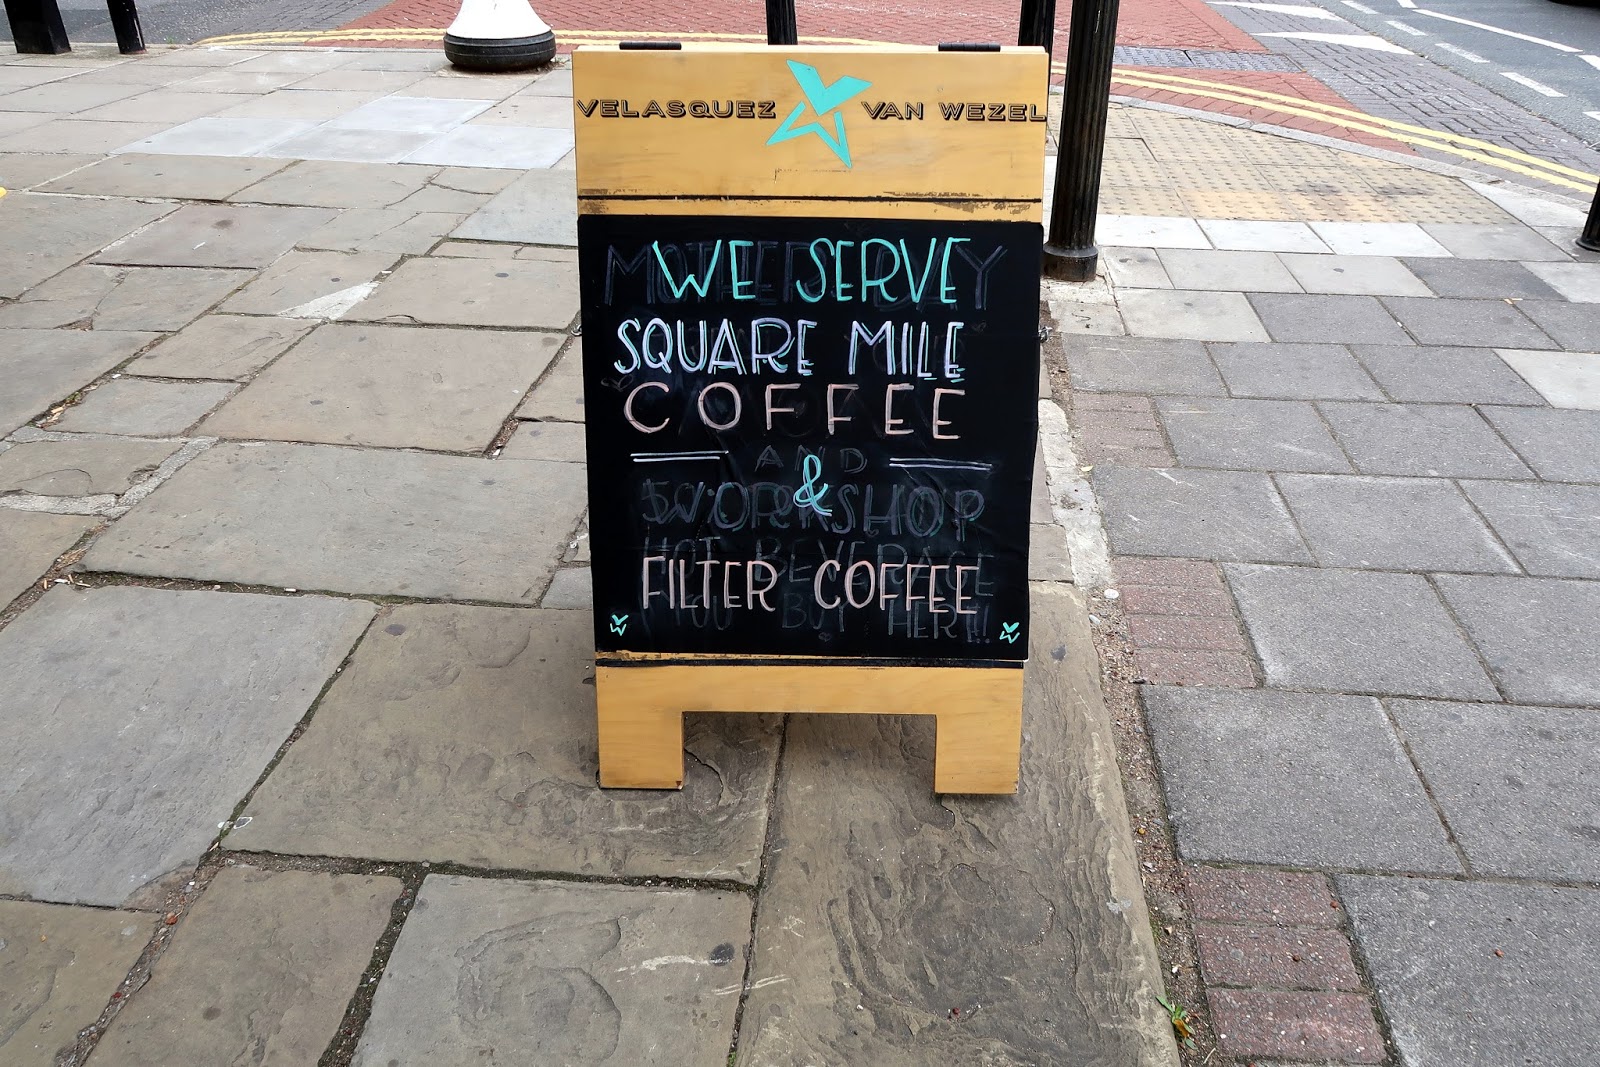 VELASQUEZ VAN WEZEL
WE SERVE
SQUARE MILE
COFFEE
&
WORKSHOP
FILTER COFFEE